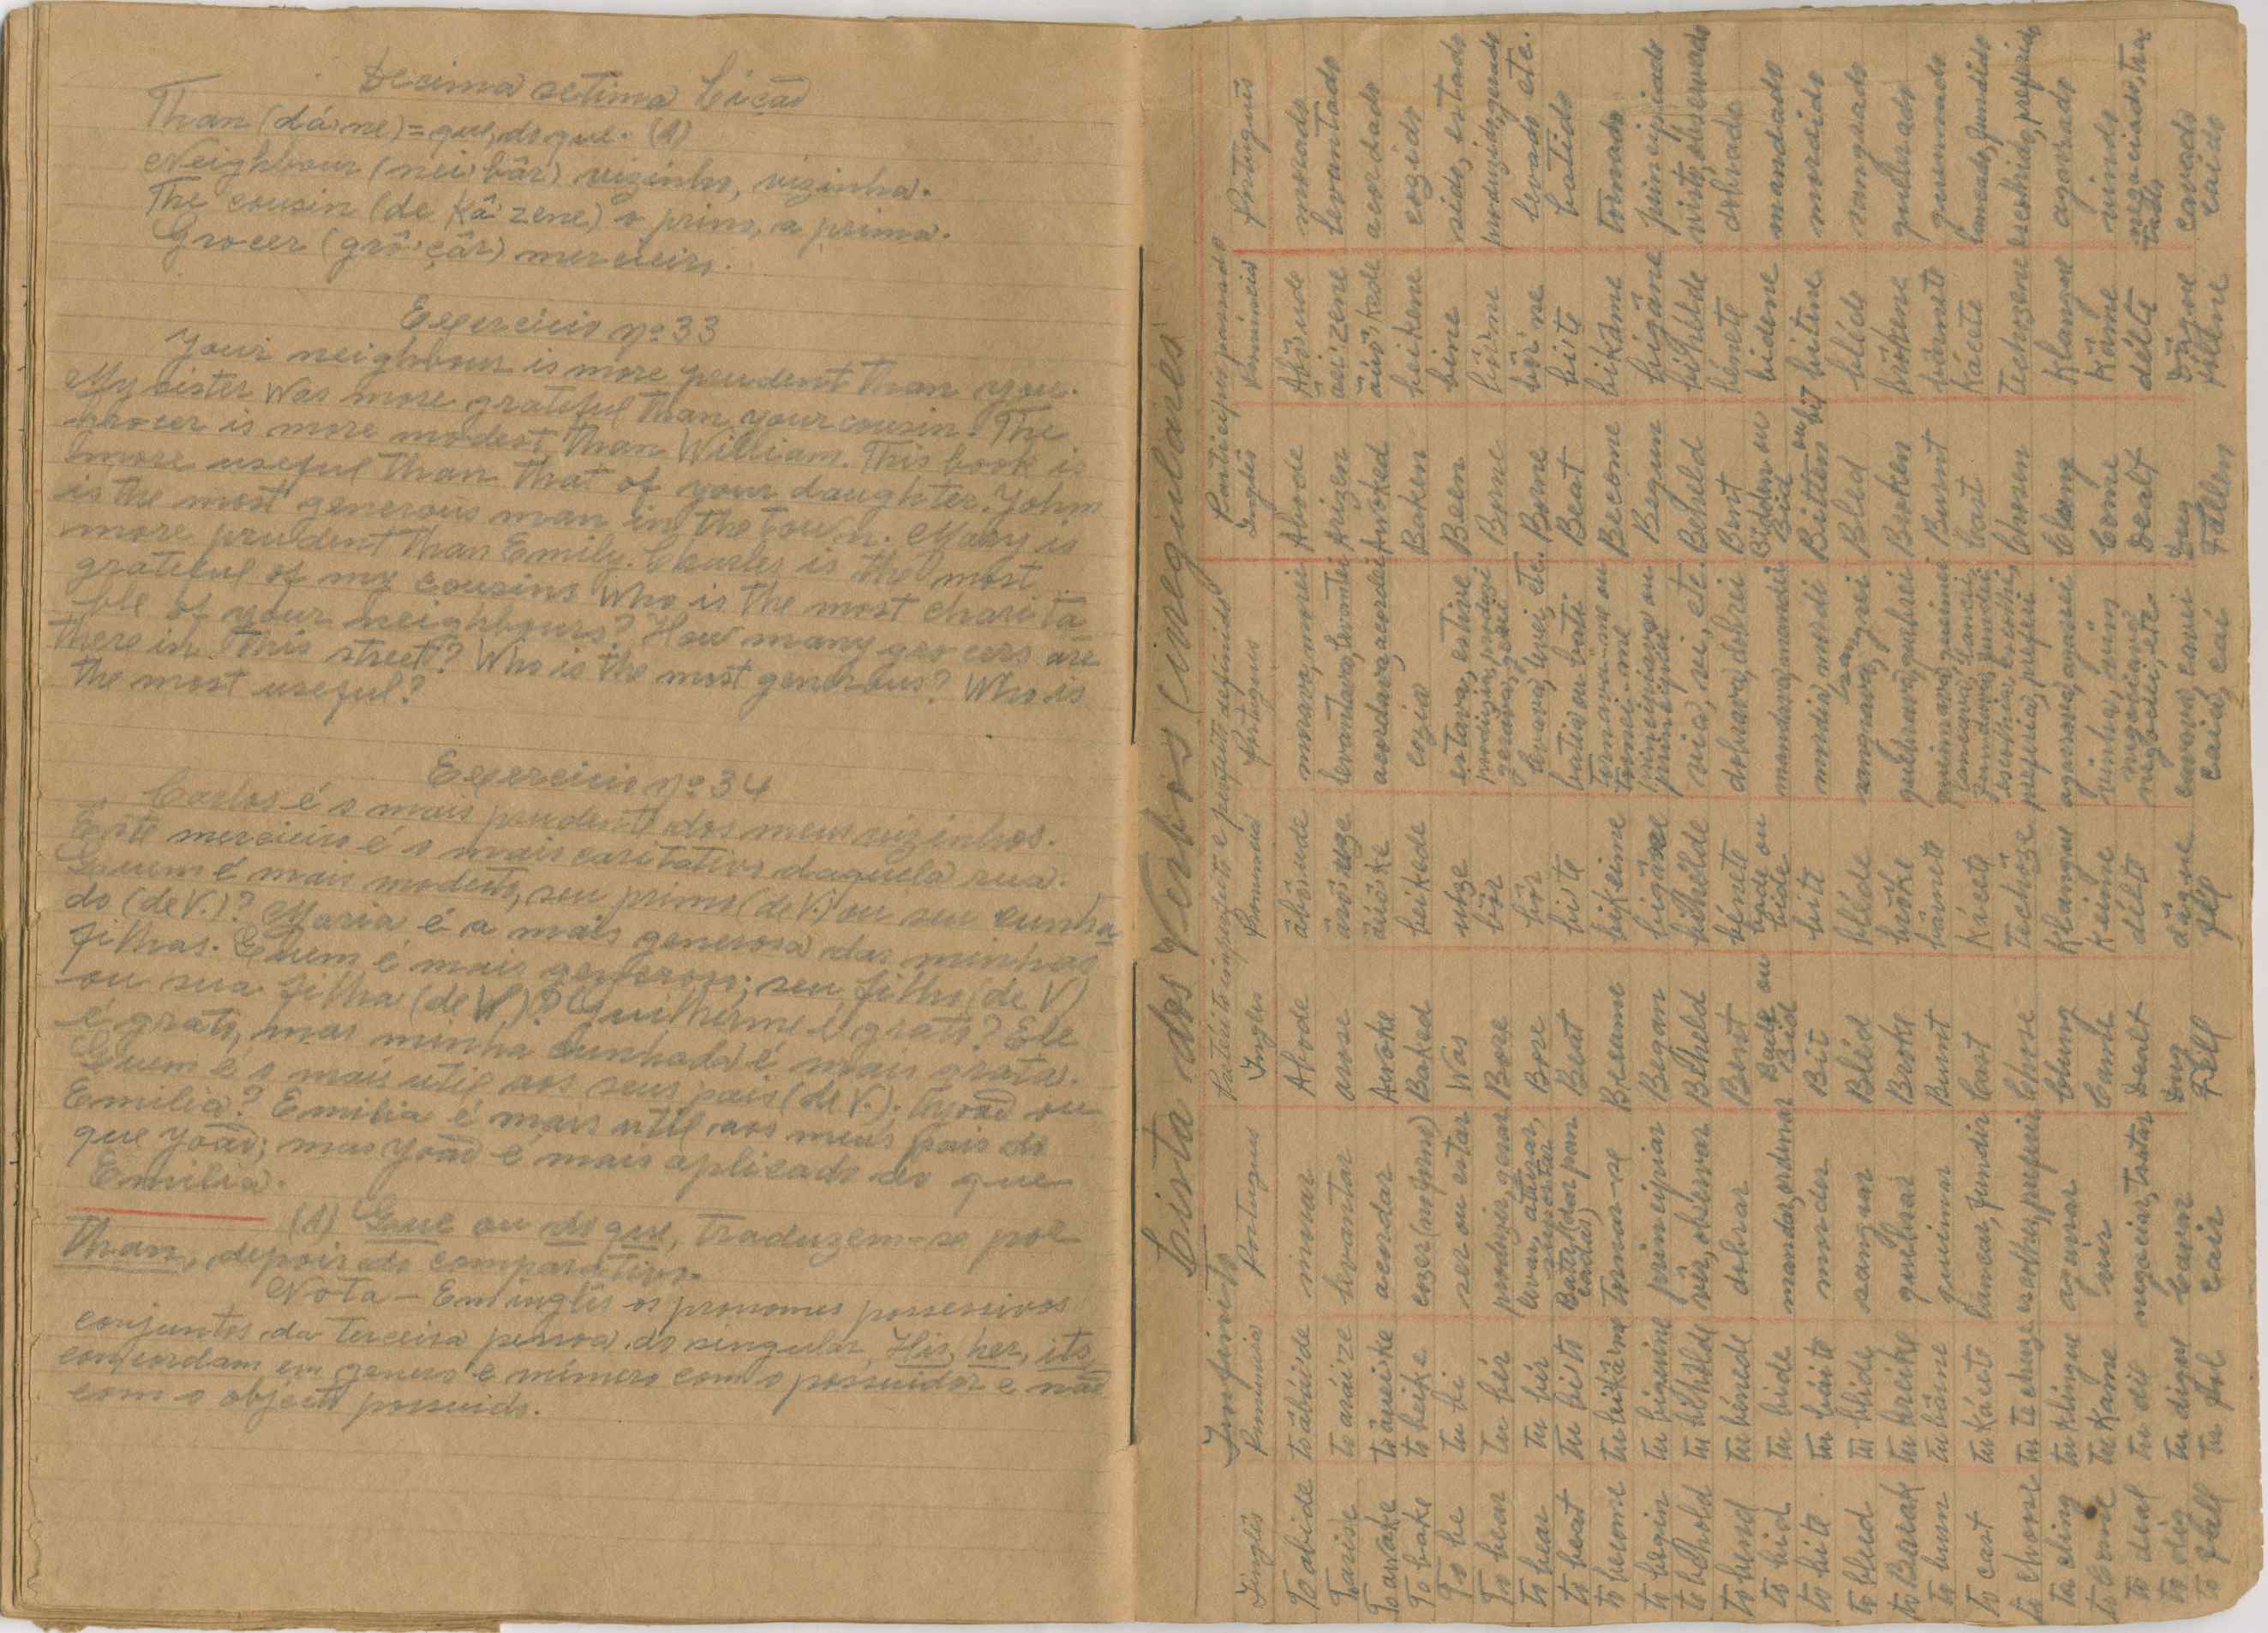 Decima setima Lição
Than (dá·ne) = que, do que. (A)
Neighbour (nei·bâr) vizinho, vizinha.
The cousin (de kâ·zene) o primo, a prima.
Grocer (grô·çâr) mercieiro.
Exercicio nº 33
Your neighbour is more prudent than you.
My sister was more grateful than your cousin. The
grocer is more modest than William. This book is
more useful than that of your daughter. John
is the most generous man in the town. Mary is
more prudent than Emily. Charles is the most
grateful of my cousins Who is the most charita
ble of your neighbours? How many grocers are
there in this street? Who is the most generous? Who is
the most useful?
Exercicio nº 34
Carlos é o mais prudente dos meus vizinhos.
Êste mercieiro é o mais caritativo daquela rua.
Quem é mais modesto, seu primo (de V.) ou seu cunha
do (de V.)? Maria é a mais generosa das minhas
filhas. Quem é mais generoso; seu filho (de V)
ou sua filha (de V.)? Guilherme é grato? Ele
é grato, mas minha cunhada é mais grata.
Quem é o mais util aos seus pais (de V.); João ou
Emilia? Emilia é mais util aos meus pais do
que João; mas João é mais aplicado do que
Emilia.
(A) Que ou do que, traduzem-se por
Than, depois do comparativo.
Nota – Em inglês os pronomes possessivos
conjuntos da terceira pessoa do singular, His, her, its
concordam em genero e número com o possuidor e não
com o objecto possuido.
Lista dos Verbos irregulares
Infinito Preterito imperfeito e perfeito definido Participio passado
Inglês Pronuncia Portugues Ingles Pronuncia Portugues Inglês Pronuncia Português
To abide tu âbáide morar Abode âbôude morava, morei Abode Abôude morado
To arise tu aráize levantar arose ârôuze levantava, levantei Arizen arizene levantado
To awake tu âueike acordar Awoke âuôke acordava, acordei Awoked âuôkede acordado
To bake tu beike cozer (no forno) Baked beikede cozia Baken beikene cozido
To be tu bi ser ou estar Was uóze estava, estive Been bine sido, estado
To bear tu bér produzir, gerar Bore bôr produzia, produzi gerava, gerei Borne bôrne produzido, gerado
to bear tu bér levar, aturar, suportar Bore bôr levava, levei, etc. Borne bôr·ne levado etc.
to beat tu bíte Bater (dar pancadas) Beat bíte batia ou bati Beat bíte batido
to become tu bikâme tornar-se Became bikeime tornava-me ou tornei-me Become bikâme tornado
to begin tu biguine principiar Began bigâne principiava ou principiei Begun bigâne principiado
to behold tu bihôlde vêr, observar Beheld bihélde via, vi, etc. Beheld bihélde visto, observado
to bend tu bénede dobrar Bent bénete dobrava, dobrei Bent bénete dobrado
to bid tu bide mandar, ordenar Bade ou Bid bade ou bide mandava, mandei Bidden ou Bid bidene mandado
to bite tu báite morder Bit bite mordia, mordi Bitten ou bit bitene mordido
to bleed tu blide sangrar Bled bléde sangrava, sangrei Bled bléde sangrado
to Break tu breike quebrar Broke brôke quebrava, quebrei Broken brôkene quebrado
to burn tu bârne queimar Burnt bârnete queimava, queimei Burnt bârnete queimado
to cast tu Kácete lancar, fundir Cast Kácete lancava, lancei, fundava, fundi Cast Kácete lancado, fundido
to choose tu tchuze escolher, preferir Chose Tchôze escolhia, escolhi, preferia, preferi Chosen Tchôzene escolhido, preferido
to cling tu klingue agarrar Clung Klangue agarrava, agarrei Clung Klangue agarrado
to come tu Kâme vir Came Keime vinha, vim Come Kâme vindo
to deal tu dil negociar, tratar Dealt délte negociava, negociei, etc Dealt délte negociado, tratado
to dig tu digue Cavar Dug dâgue cavava, cavei Dug Dâgue cavado
to fall tu fol cair Fell fél caía, caí Fallen fólene caído